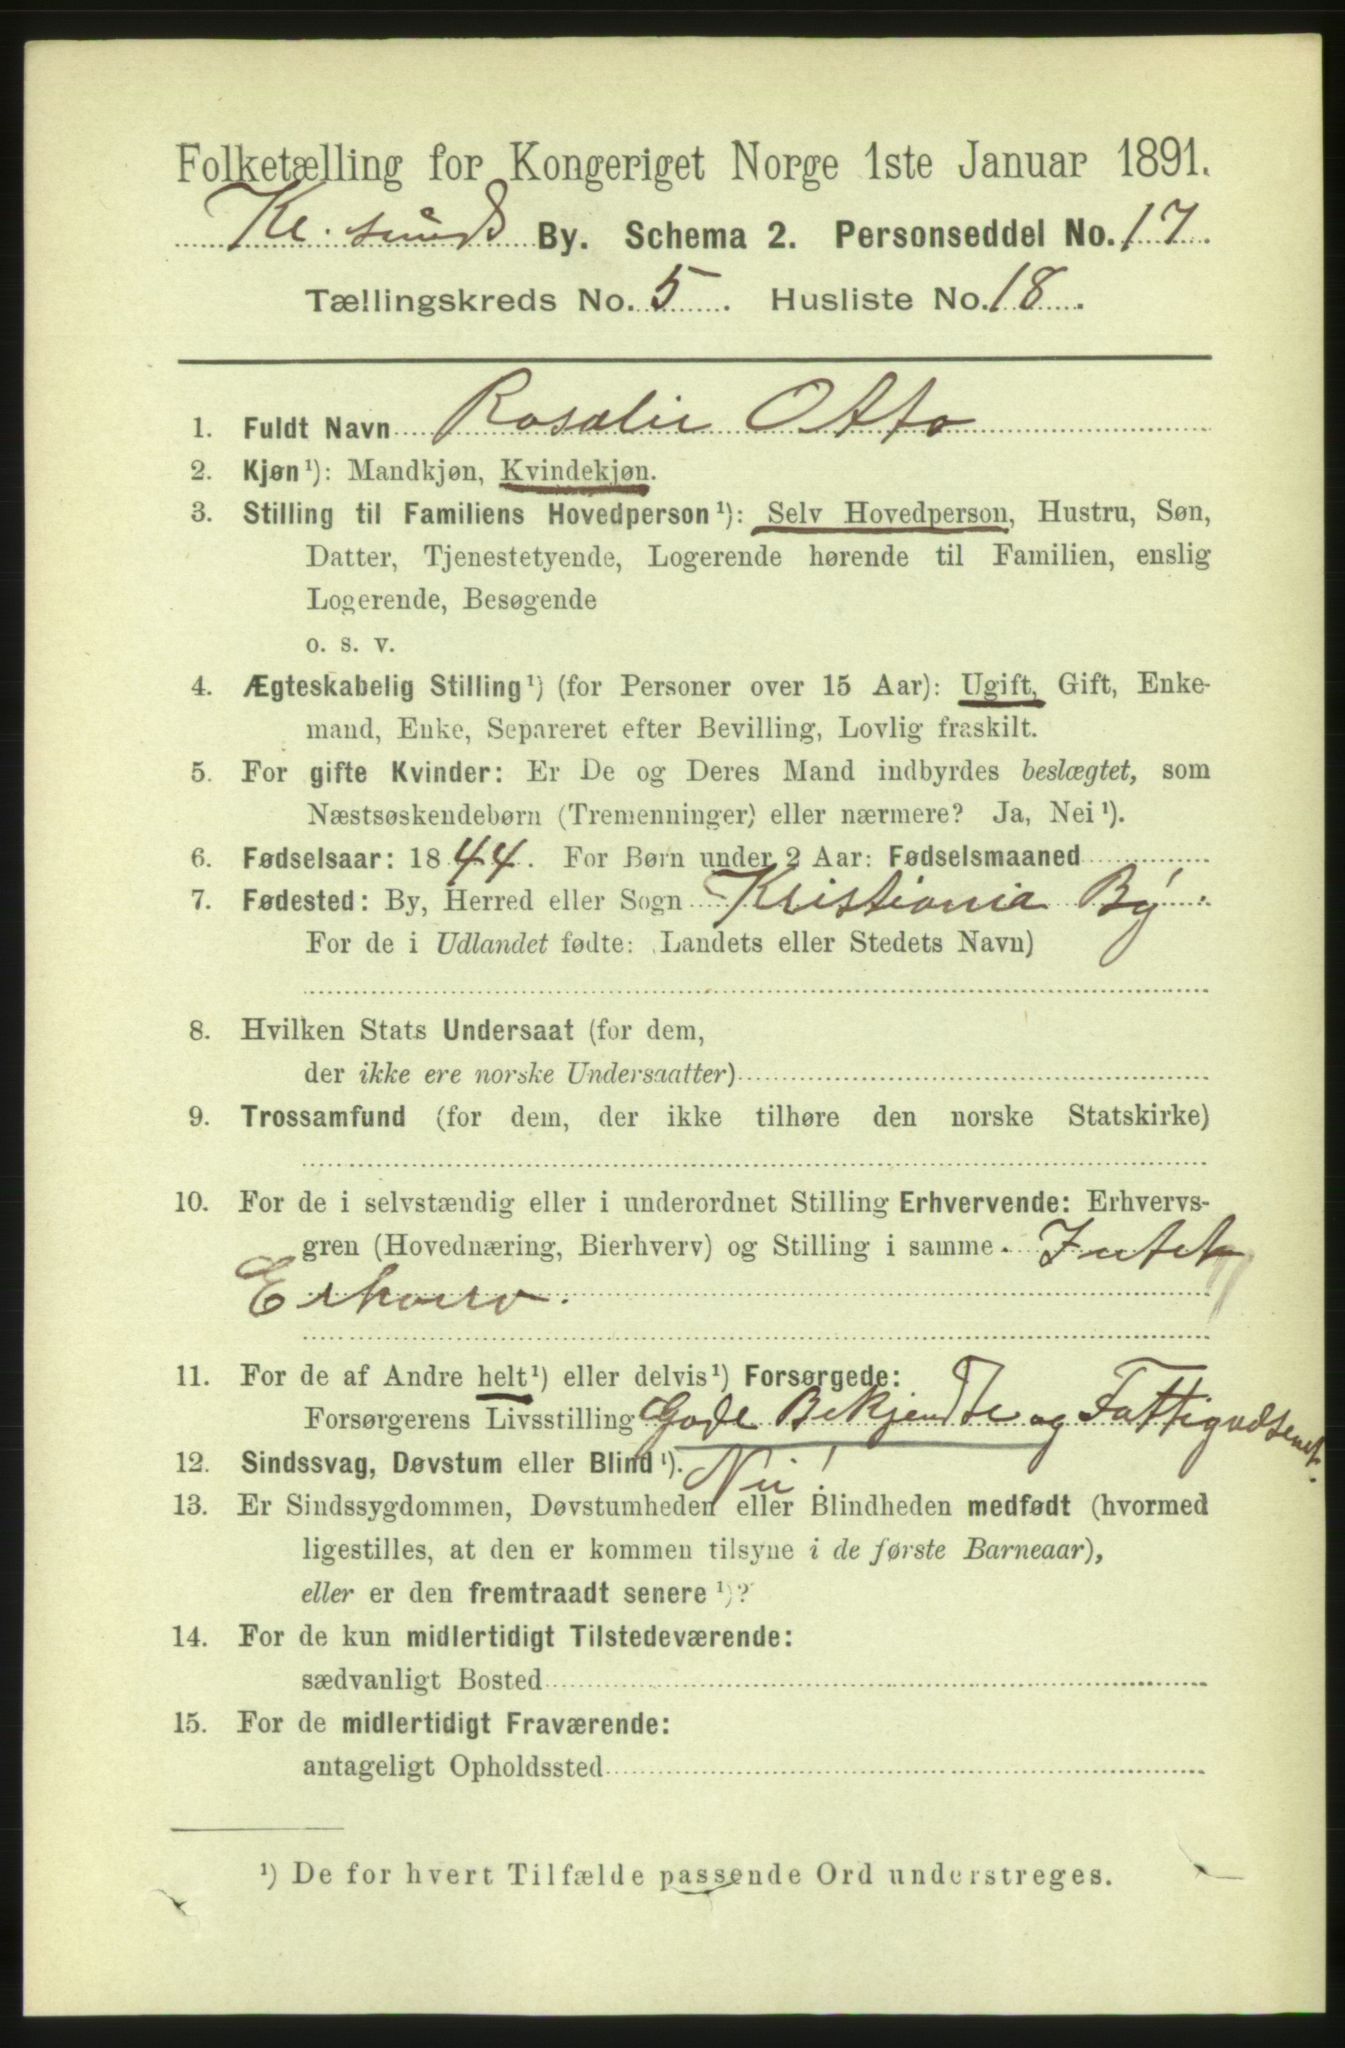 Folketælling for Kongeriget Norge 1ste Januar 1891.
Kr. sunds By. Schema 2. Personseddel No. 17.
Tællingskreds No. 5. Husliste No. 18.
1. Fuldt Navn Rosalie Otto
2. Kjøn¹): Mandkjøn, Kvindekjøn.
3. Stilling til Familiens Hovedperson¹): Selv Hovedperson, Hustru, Søn,
Datter, Tjenestetyende, Logerende hørende til Familien, enslig
Logerende, Besøgende
o. s. v.
4. Ægteskabelig Stilling¹) (for Personer over 15 Aar): Ugift, Gift, Enke-
mand, Enke, Separeret efter Bevilling, Lovlig fraskilt.
5. For gifte Kvinder: Er De og Deres Mand indbyrdes beslægtet, som
Næstsøskendebørn (Tremenninger) eller nærmere? Ja, Nei¹).
6. Fødselsaar: 1844. For Børn under 2 Aar: Fødselsmaaned
7. Fødested: By, Herred eller Sogn Kristiania By.
For de i Udlandet fødte: Landets eller Stedets Navn)
8. Hvilken Stats Undersaat (for dem,
der ikke ere norske Undersaatter)
9. Trossamfund (for dem, der ikke tilhøre den norske Statskirke)
10. For de i selvstændig eller i underordnet Stilling Erhvervende: Erhvervs-
gren (Hovednæring, Bierhverv) og Stilling i samme. Intet
Erhverv.
11. For de af Andre helt¹) eller delvis¹) Forsørgede:
Forsørgerens Livsstilling Gode Bekjendte og Fattigvæsenet.
12. Sindssvag, Døvstum eller Blind¹). Nei!
13. Er Sindssygdommen, Døvstumheden eller Blindheden medfødt (hvormed
ligestilles, at den er kommen tilsyne i de første Barneaar),
eller er den fremtraadt senere¹)?
14. For de kun midlertidigt Tilstedeværende:
sædvanligt Bosted
15. For de midlertidigt Fraværende:
antageligt Opholdssted
¹) De for hvert Tilfælde passende Ord understreges.